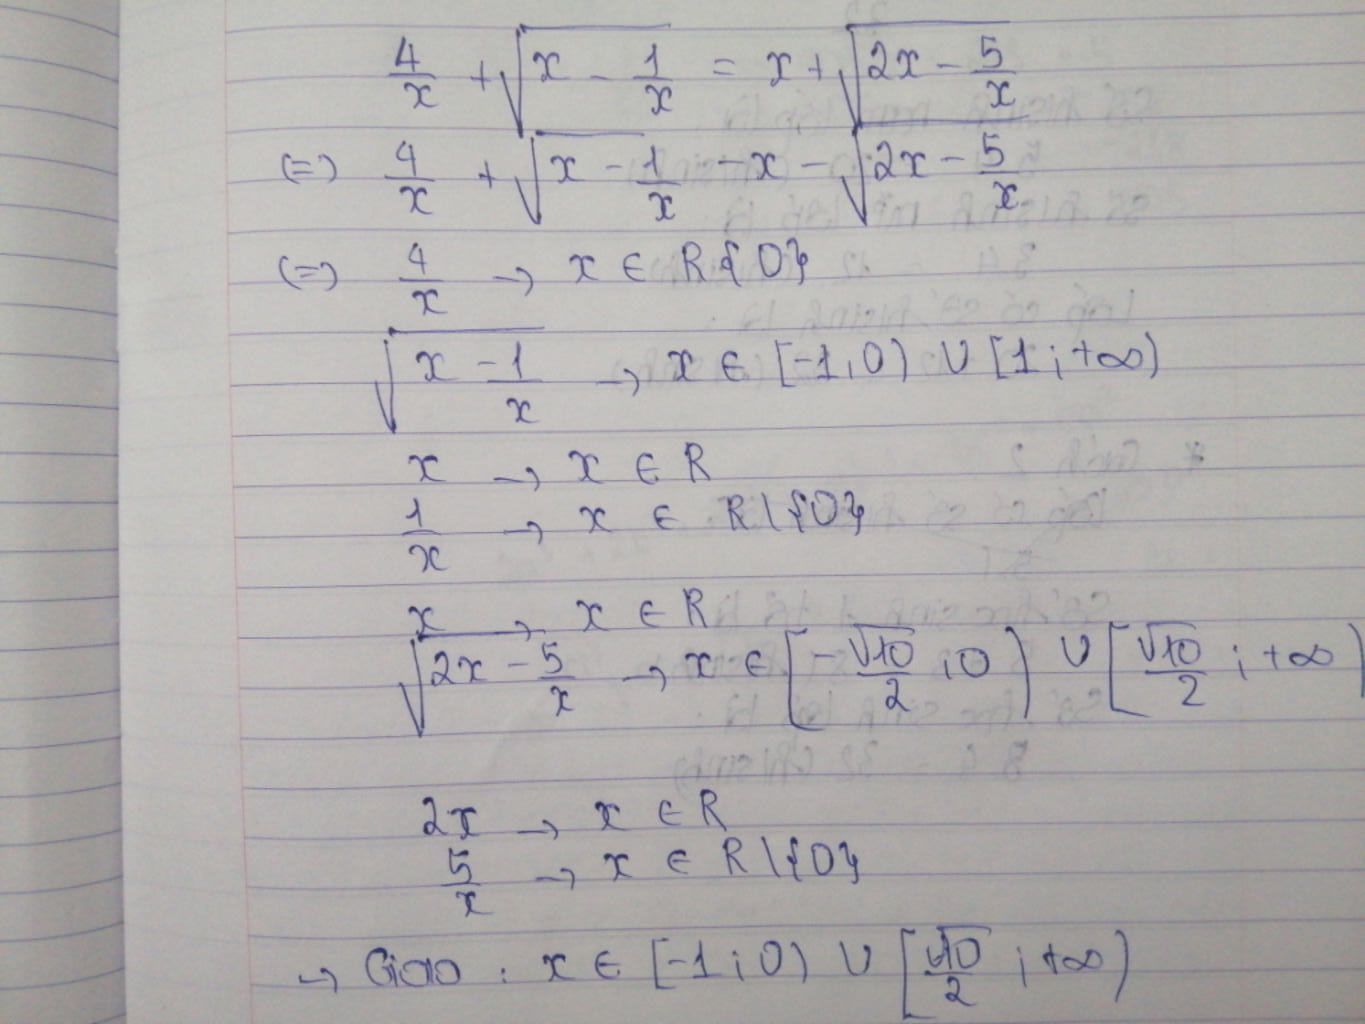 4/x + √(x - 1/x) = x + √(2x - 5/x)
(=) 4/x + √(x - 1/x) - x - √(2x - 5/x)
(=) 4/x → x ∈ R{0}
√(x - 1/x) → x ∈ [-1;0) ∪ [1;+∞)
x → x ∈ R
1/x → x ∈ R\{0}
x → x ∈ R
√(2x - 5/x) → x ∈ [-√10/2;0) ∪ [√10/2;+∞)
2x → x ∈ R
5/x → x ∈ R\{0}
→ Giao : x ∈ [-1;0) ∪ [√10/2;+∞)